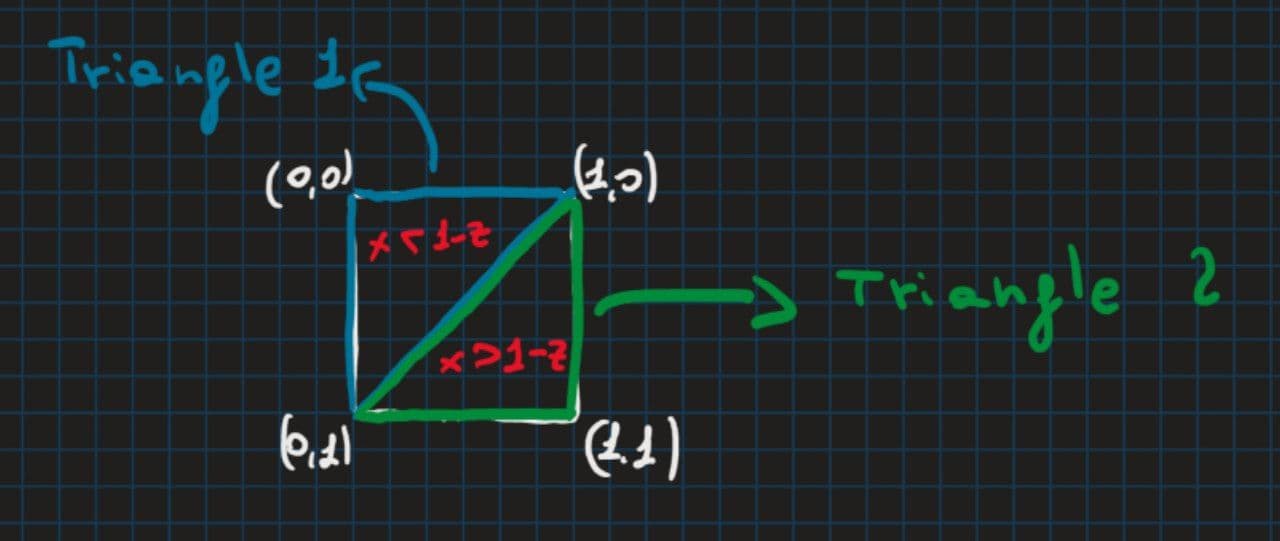 Triangle 1
(0,0)
(1,0)
x < 1-z
Triangle 2
x > 1-z
(0,1)
(1.1)